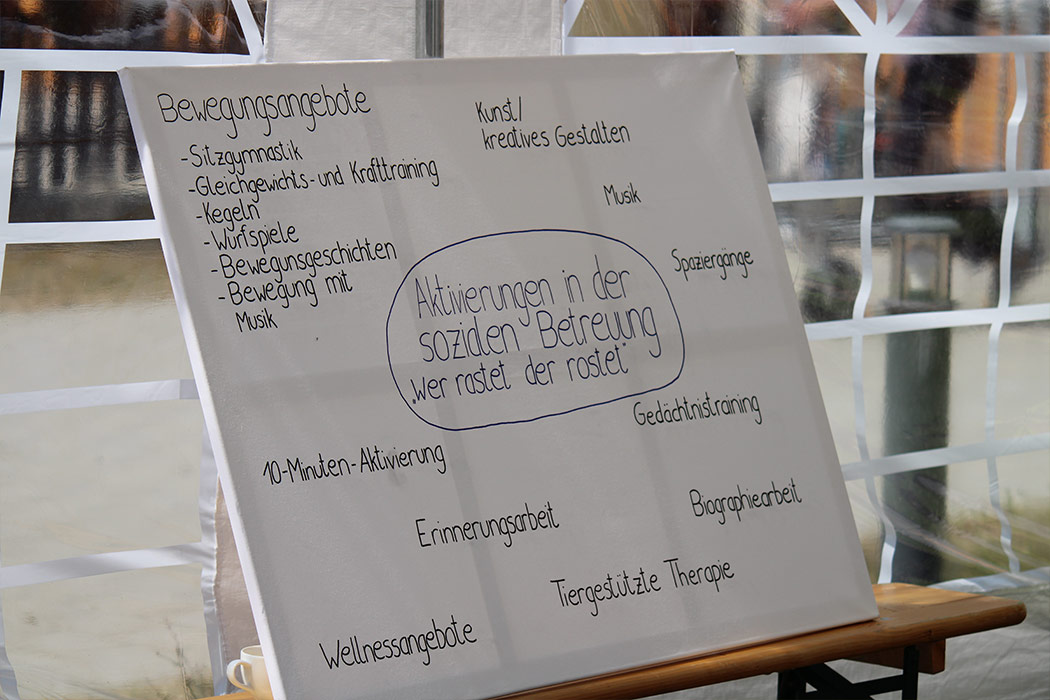 Bewegungsangebote
-Sitzgymnastik
-Gleichgewichts- und Krafttraining
-Kegeln
-Wurfspiele
-Bewegunsgeschichten
-Bewegung mit
Musik
Kunst/
kreatives Gestalten
Musik
Spaziergänge
Aktivierungen in der
sozialen Betreuung
„wer rastet der rostet"
Gedächtnistraining
10-Minuten-Aktivierung
Biographiearbeit
Erinnerungsarbeit
Tiergestützte Therapie
Wellnessangebote